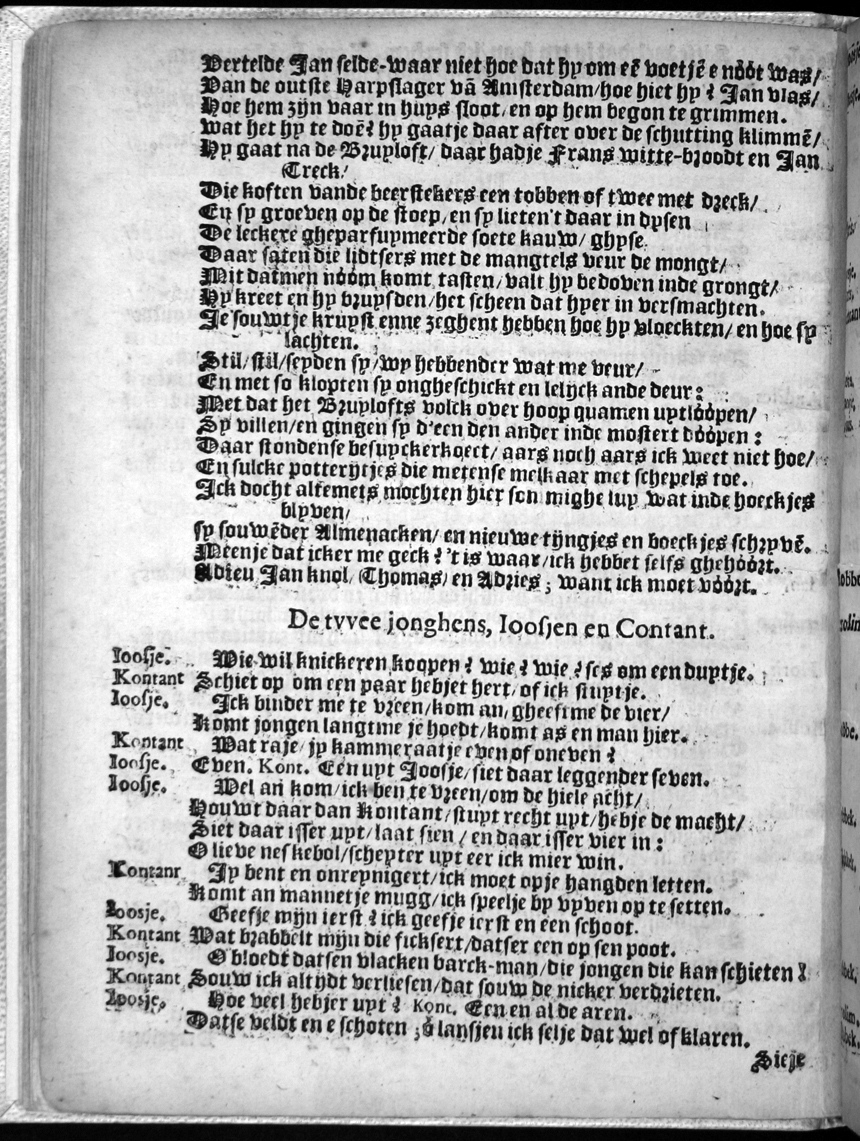 Vertelde Jan selde-waar niet hoe dat hy om eē voetjē e nóót was/
Van de outste Harpslager vā Amsterdam/hoe hiet hy? Jan vlas/
Hoe hem zijn vaar in huys sloot/en op hem begon te grimmen.
Wat het hy te doē? hy gaatje daar after over de schutting klimmē/
Hy gaat na de Bruyloft/daar hadje Frans witte-broodt en Jan
Treck/
Die koften vande beerstekers een tobben of twee met dreck/
En sy groeven op de stoep/en sy lieten't daar in dysen
De leckere gheparfuymeerde soete kauw/ghyse.
Daar saten die lidtsers met de mangtels veur de mongt/
Mit datmen nóóm komt tasten/valt hy bedoven inde grongt/
Hy kreet en hy bruysden/het scheen dat hyer in versmachten.
Je souwtje kruyst enne zeghent hebben hoe hy vloeckten/en hoe sy
lachten.
Stil/stil/seyden sy/wy hebbender wat me veur/
En met so klopten sy ongheschickt en lelijck ande deur:
Met dat het Bruylofts volck over hoop quamen uytlóópen/
Sy villen/en gingen sy d'een den ander inde mostert dóópen:
Daar stondense besuyckerkoect/aars noch aars ick weet niet hoe/
En sulcke potterytjes die metense melkaar met schepels toe.
Ick docht altemets mochten hier son mighe luy wat inde hoeckjes
blyven/
sy souwēder Almenacken/en nieuwe tijngjes en boeckjes schryvē.
Meenje dat icker me geck? 't is waar/ick hebbet selfs ghehóórt.
Adieu Jan knol/Thomas/en Adries; want ick moet vóórt.
De tvvee jonghens, Ioosjen en Contant.
Ioosje. Wie wil knickeren koopen? wie? wie? ses om een duytje.
Kontant Schiet op om een paar hebjet hert/of ick stuytje.
Ioosje. Ick binder me te vreen/kom an/gheeft me de vier/
Komt jongen langtme je hoedt/komt as en man hier.
Kontant Wat raje/jy kammeraatje even of oneven?
Ioosje. Even. Kont. Een uyt Joosje/siet daar leggender seven.
Ioosje. Wel an kom/ick ben te vreen/om de hiele acht/
Houwt daar dan Kontant/stuyt recht uyt/hebje de macht/
Siet daar isser uyt/laat sien/en daar isser vier in:
O lieve neskebol/schepter uyt eer ick mier win.
Kontanr Jy bent en onreynigert/ick moet opje hangden letten.
Komt an mannetje mugg/ick speelje by vyven op te setten.
Ioosje. Geefje mijn ierst? ick geefje ierst en een schoot.
Kontant Wat brabbelt mijn die ficksert/datser een op sen poot.
Ioosje. O bloedt datsen vlacken barck-man/die jongen die kan schieten?
Kontant Souw ick altijdt verliesen/dat souw de nicker verdrieten.
Ioosje. Hoe veel hebjer uyt? Konc. Een en al de aren.
Datse veldt en e schoten; ó lansjeu ick selje dat wel of klaren.
Sieje